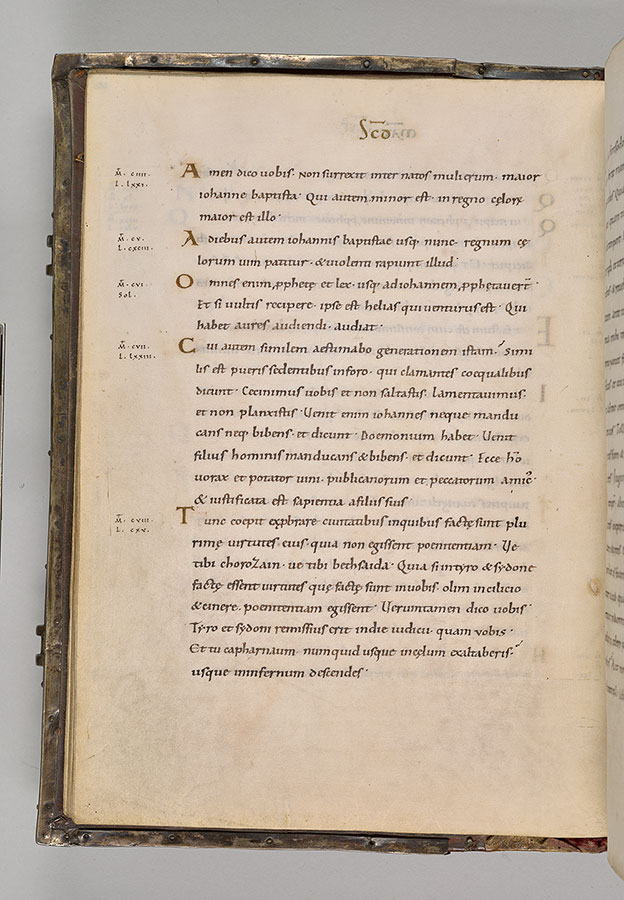 Scd
M. CIIII.
L. LXXI.
Amen dico uobis. Non surrexit inter natos mulierum. maior
iohanne baptista. Qui autem minor est. in regno cęlorx
maior est illo.
M. CV.
L. CXCIII.
A diebus autem iohannis baptistae usq; nunc. regnum cę
lorum uim patitur. & uiolenti rapiunt illud.
M. CVI.
Sol.
Omnes enim pphetę et lex. usq; ad iohannem, pphetauert̄.
Et si uultis recipere. ipse est helias qui uenturus est. Qui
habet aures audiendi. audiat.
M. CVII.
L. LXXIII.
Cui autem similem aestimabo generationem istam. Simi
lis est pueris sedentibus in foro. qui clamantes coequalibus
dicunt. Cecinimus uobis et non saltastis. lamentauimus.
et non planxistis. Uenit enim iohannes neque mandu
cans neq; bibens. et dicunt. Doemonium habet. Uenit
filius hominis manducans & bibens. et dicunt. Ecce ho
uorax et potator uini. publicanorum et peccatorum amic᾿.
& iustificata est sapientia a filiis suis.
M. CVIII.
L. CXV.
Tunc coepit exprobrare ciuitatibus in quibus factę sunt plu
rimę uirtutes eius. quia non egissent poenitentiam. Ue
tibi chorozain. ue tibi bethsaida. Quia si in tyro & sydone
factę essent uirtutes quę factę sunt in uobis. olim in cilicio
& cinere. poenitentiam egissent. Ueruntamen dico uobis.
Tyro et sydoni remissius erit in die iudicii. quam vobis.
Et tu capharnaum. numquid usque in cęlum exaltaberis.
usque in infernum descendes.